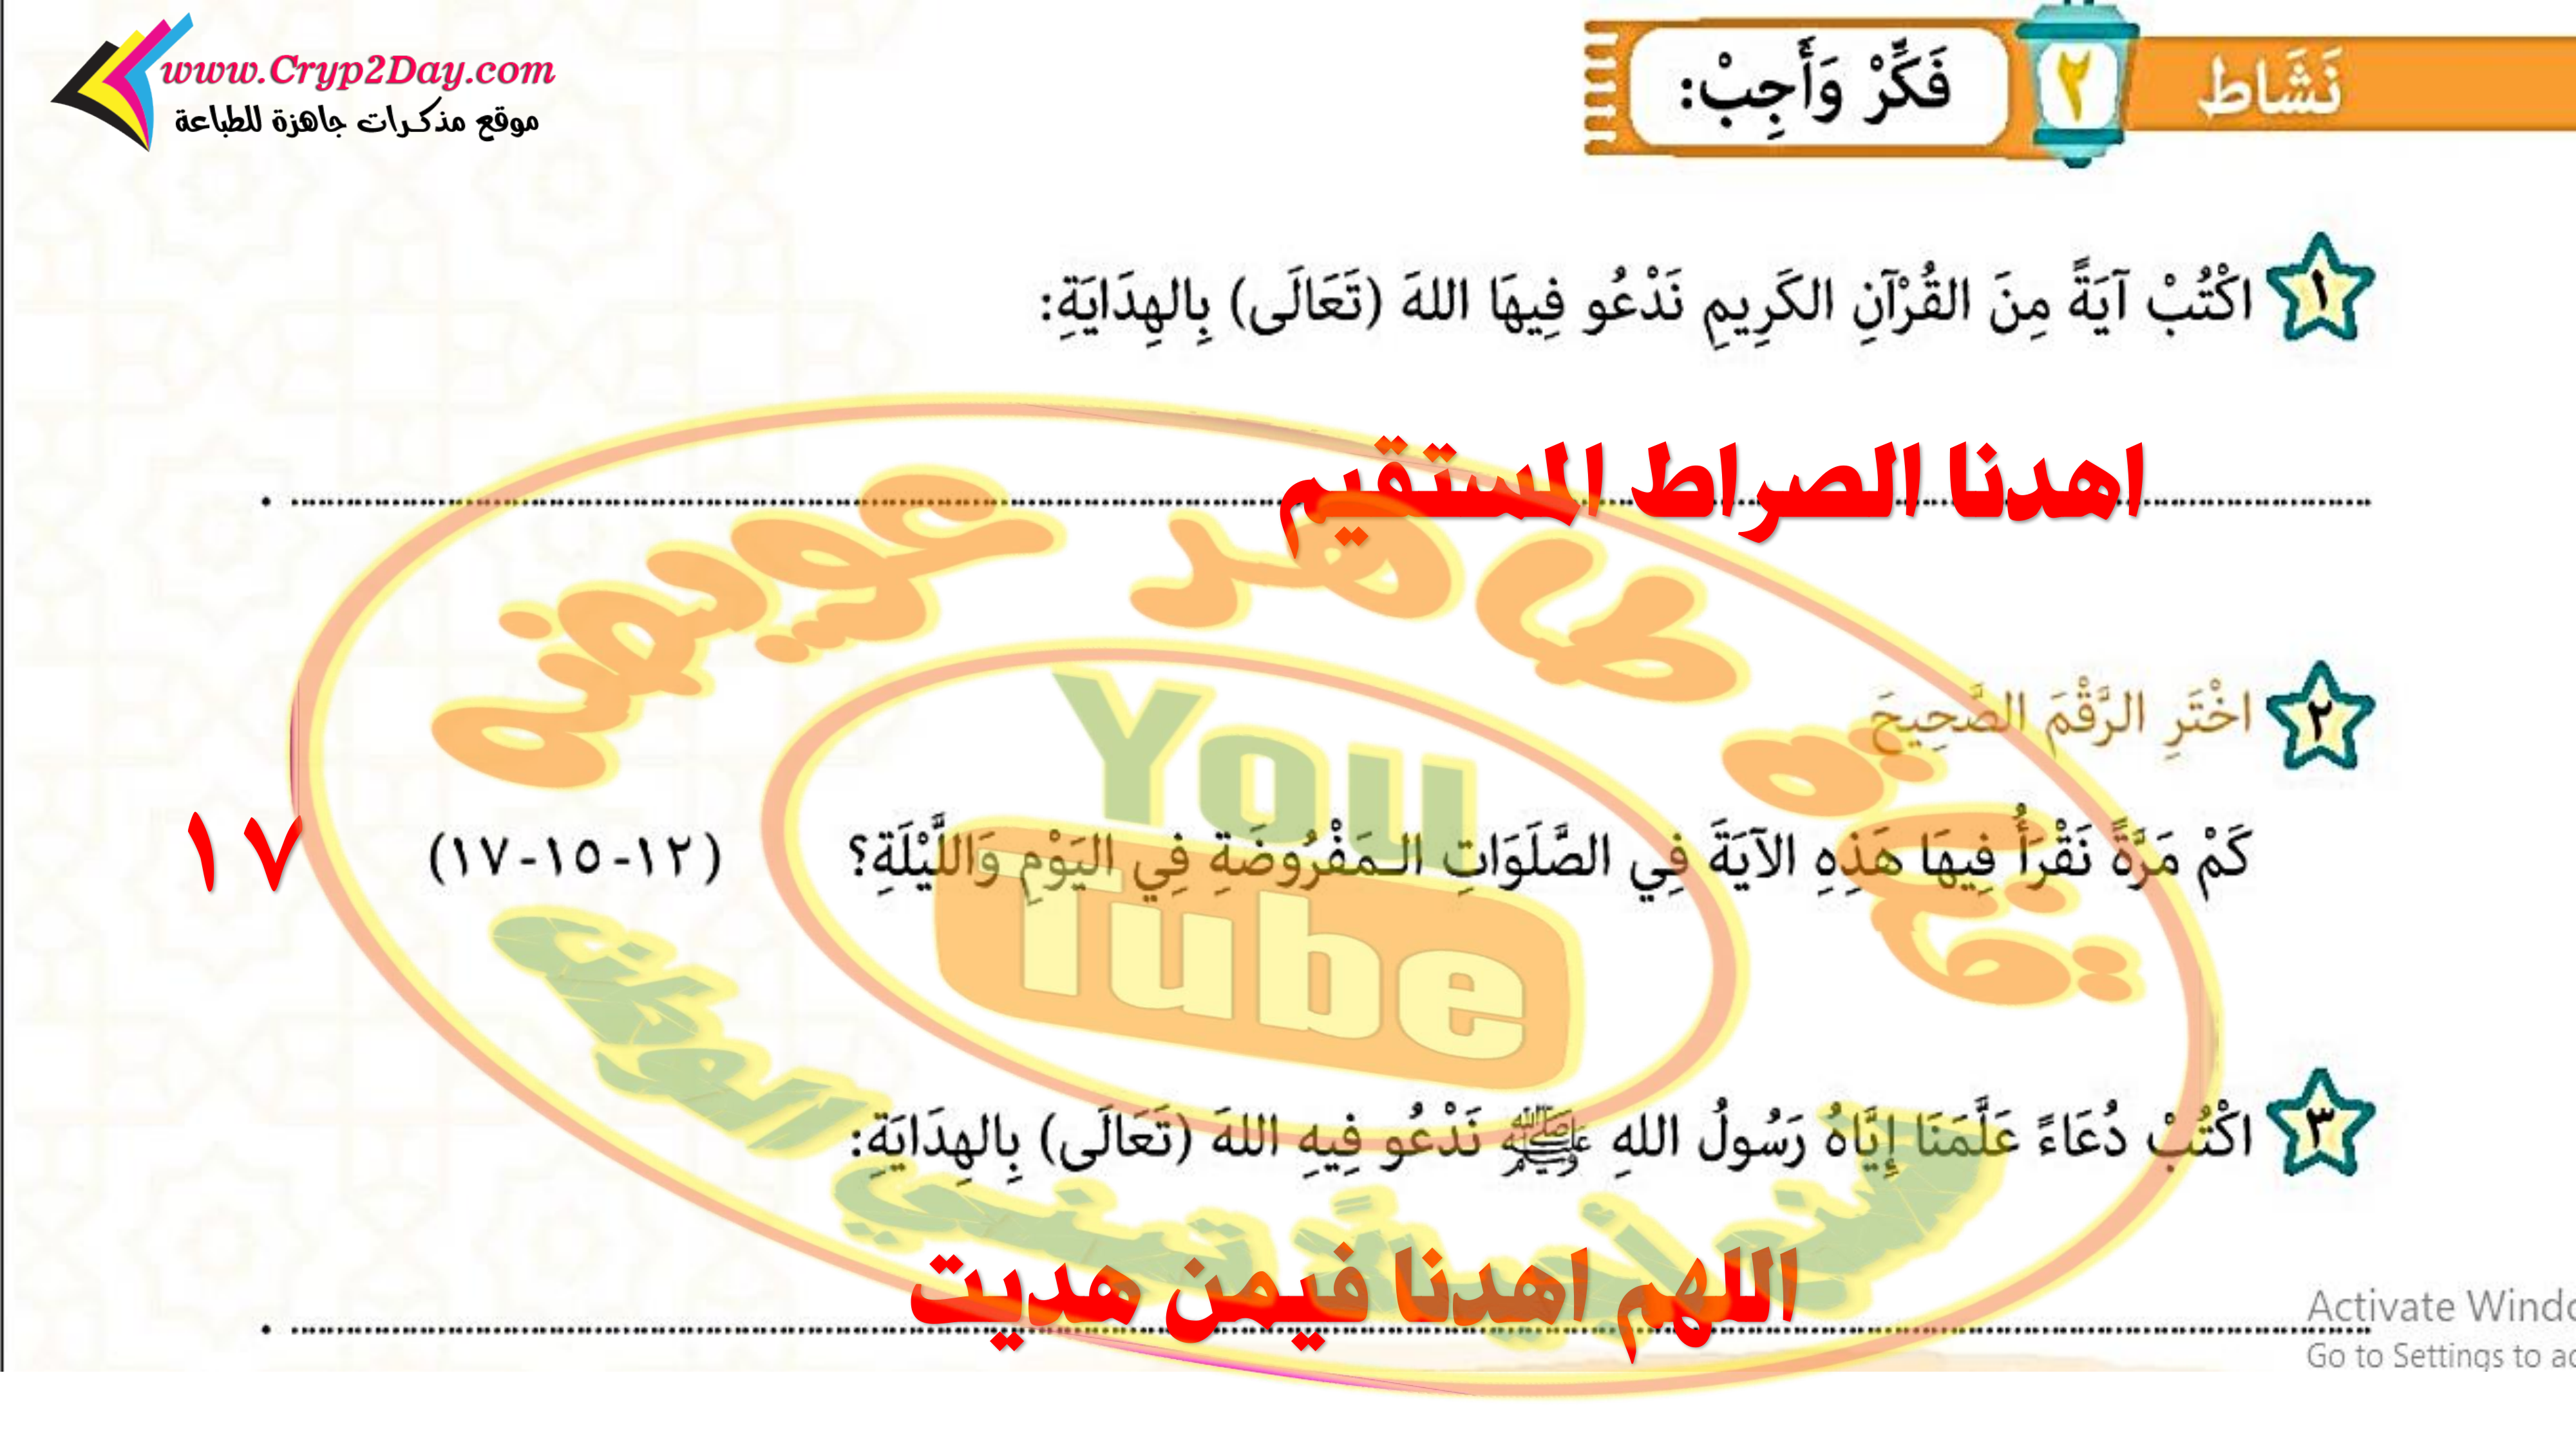 www.Cryp2Day.com
موقع مذكرات جاهزة للطباعة
نَشَاط ٢ فَكِّرْ وَأَجِبْ:
١ اكْتُبْ آيَةً مِنَ القُرْآنِ الكَرِيمِ نَدْعُو فِيهَا اللهَ (تَعَالَى) بِالهِدَايَةِ:
اهدنا الصراط المستقيم
٢ اخْتَرِ الرَّقْمَ الصَّحِيحَ
كَمْ مَرَّةً نَقْرَأُ فِيهَا هَذِهِ الآيَةَ فِي الصَّلَوَاتِ الـمَفْرُوضَةِ فِي اليَوْمِ وَاللَّيْلَةِ؟ (١٢-١٥-١٧) ١٧
٣ اكْتُبْ دُعَاءً عَلَّمَنَا إِيَّاهُ رَسُولُ اللهِ ﷺ نَدْعُو فِيهِ اللهَ (تَعَالَى) بِالهِدَايَةِ:
اللهم اهدنا فيمن هديت
قناة طاهر عويضه
You
Tube
Activate Windo
Go to Settings to ac